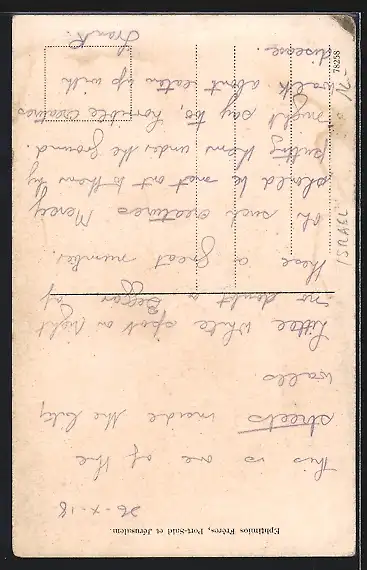 26-X-18
This is one of the
streets inside the City
walls
Little white spot on right
no doubt a Beggar of
these a great number.
Oh such creatures Mercy
should be met out to them by
putting them under the ground
might say too, horrible creatures
walk about eaten up with
disease.
Frank.
Ephtimios Frères, Port-Said et Jérusalem.
78258
ISRAEL